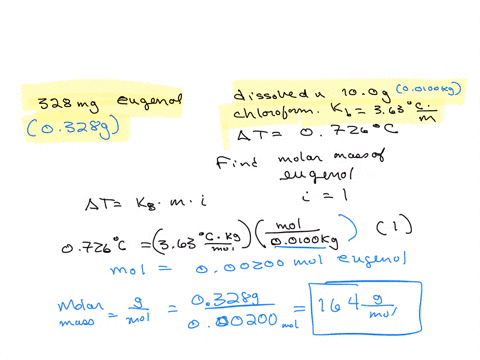 328 mg eugenol
(0.328g)
dissolved in 10.0g (0.0100kg)
chloroform. Kb = 3.63 °C·/m
ΔT = 0.726°C
Find molar mass of
eugenol
i = 1
ΔT = KB · m · i
0.726°C = (3.63 °C·kg/mol) (mol/0.0100kg) (1)
mol = 0.00200 mol eugenol
Molar mass = g/mol = 0.328g/0.00200 mol = 164 g/mol